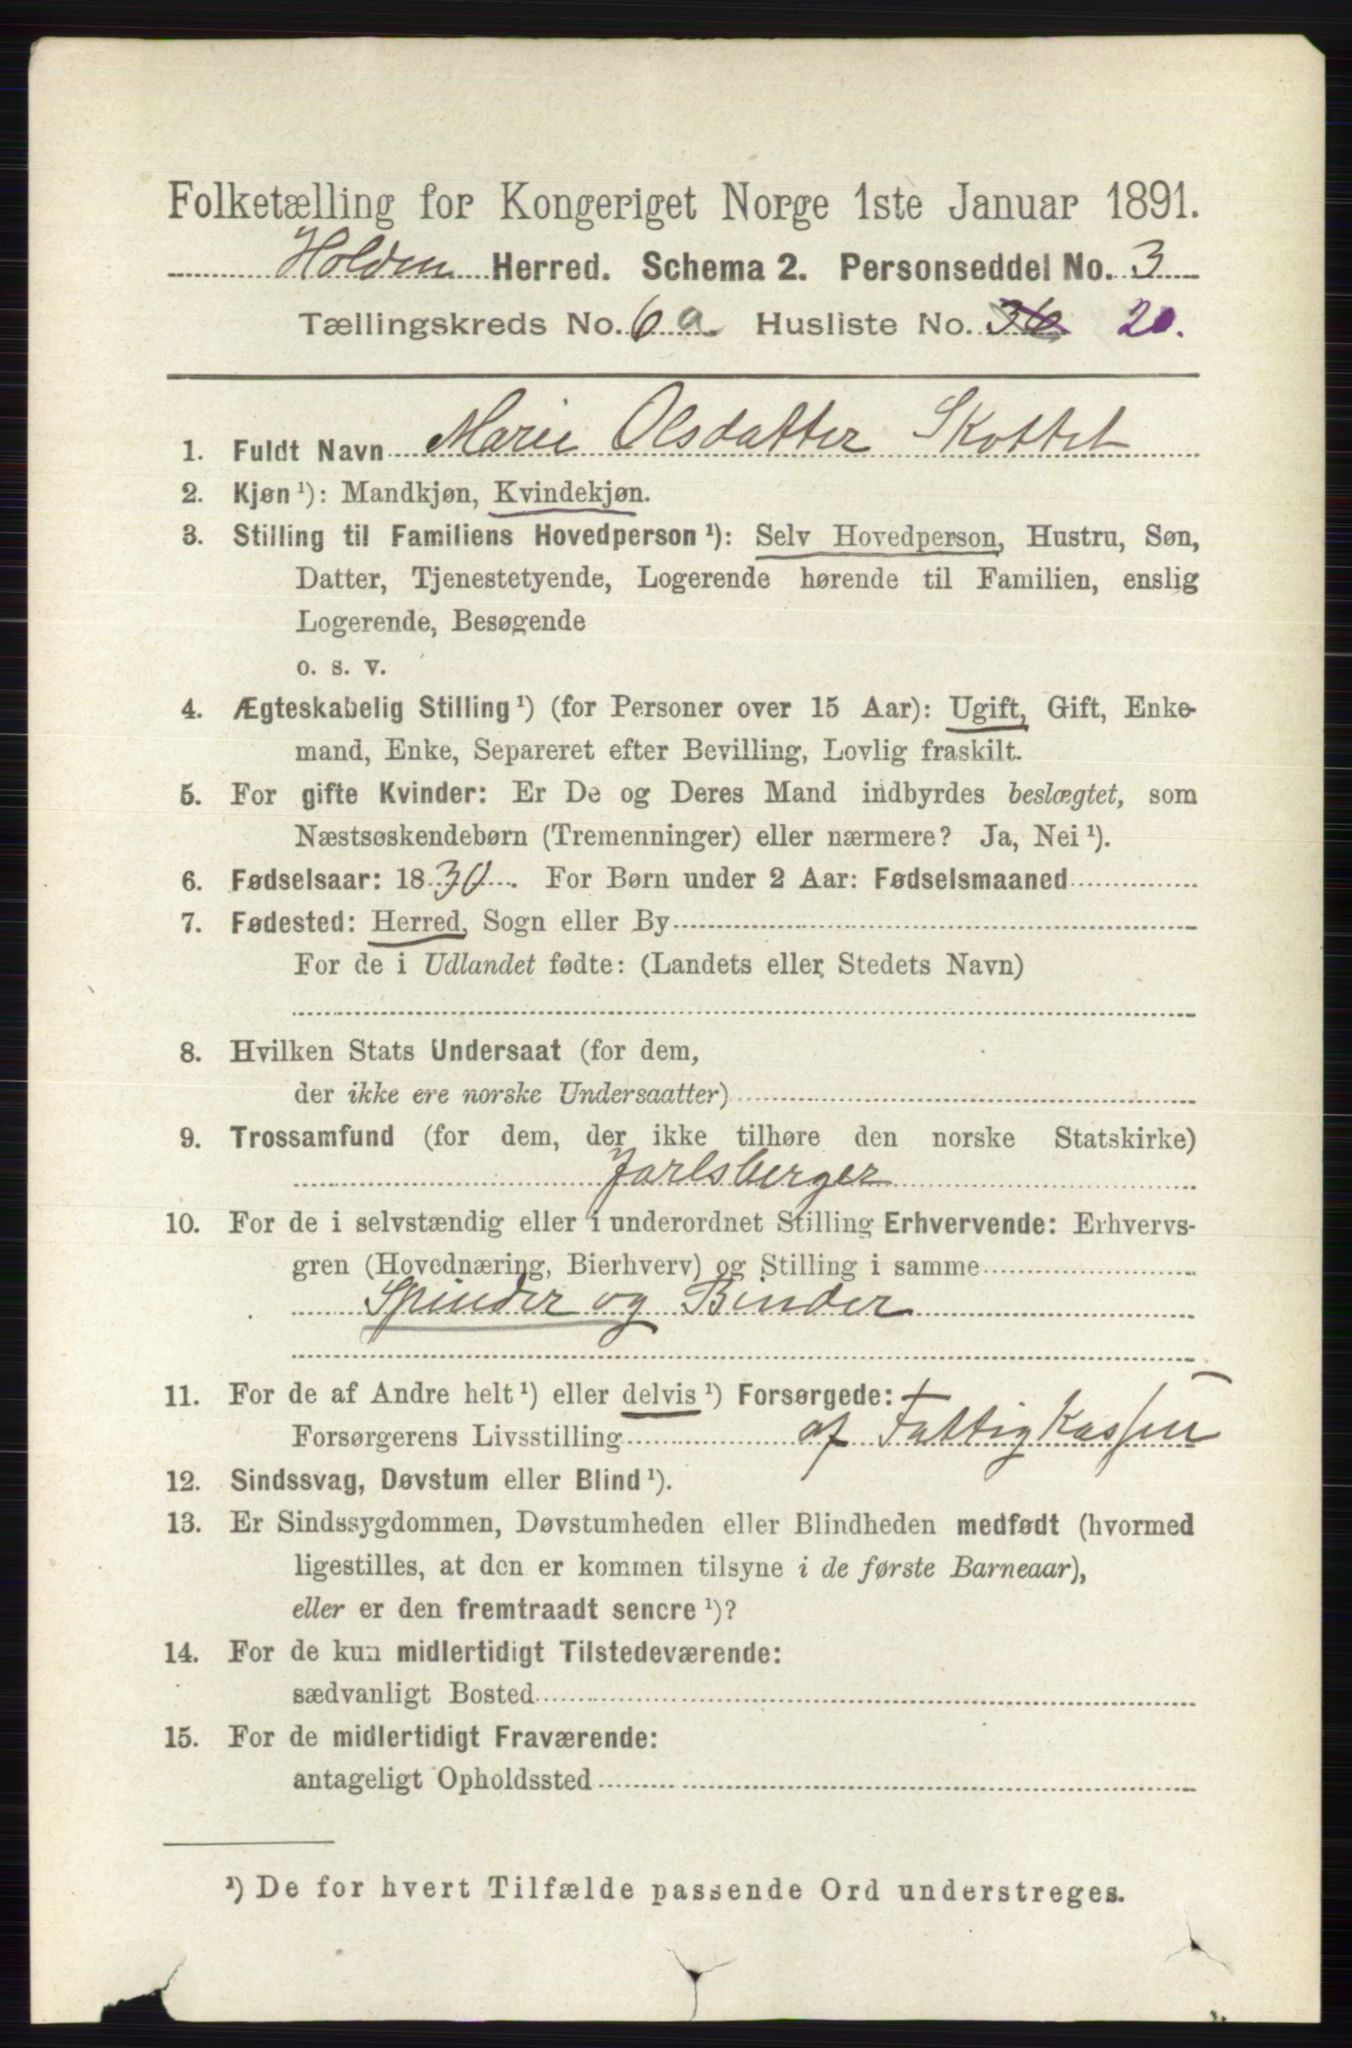 Folketælling for Kongeriget Norge 1ste Januar 1891.
Holden Herred. Schema 2. Personseddel No. 3
Tællingskreds No. 6 a Husliste No. 36 20.
1. Fuldt Navn Marie Olsdatter Skottet
2. Kjøn ¹): Mandkjøn, Kvindekjøn.
3. Stilling til Familiens Hovedperson ¹): Selv Hovedperson, Hustru, Søn,
Datter, Tjenestetyende, Logerende hørende til Familien, enslig
Logerende, Besøgende
o. s. v.
4. Ægteskabelig Stilling ¹) (for Personer over 15 Aar): Ugift, Gift, Enke-
mand, Enke, Separeret efter Bevilling, Lovlig fraskilt.
5. For gifte Kvinder: Er De og Deres Mand indbyrdes beslægtet, som
Næstsøskendebørn (Tremenninger) eller nærmere? Ja, Nei ¹).
6. Fødselsaar: 1830. For Børn under 2 Aar: Fødselsmaaned
7. Fødested: Herred, Sogn eller By
For de i Udlandet fødte: (Landets eller Stedets Navn)
8. Hvilken Stats Undersaat (for dem,
der ikke ere norske Undersaatter)
9. Trossamfund (for dem, der ikke tilhøre den norske Statskirke)
Jarlsberger
10. For de i selvstændig eller i underordnet Stilling Erhvervende: Erhvervs-
gren (Hovednæring, Bierhverv) og Stilling i samme
Spinder og Binder
11. For de af Andre helt ¹) eller delvis ¹) Forsørgede:
Forsørgerens Livsstilling af Fattigkassen
12. Sindssvag, Døvstum eller Blind ¹).
13. Er Sindssygdommen, Døvstumheden eller Blindheden medfødt (hvormed
ligestilles, at den er kommen tilsyne i de første Barneaar),
eller er den fremtraadt senere ¹)?
14. For de kun midlertidigt Tilstedeværende:
sædvanligt Bosted
15. For de midlertidigt Fraværende:
antageligt Opholdssted
¹) De for hvert Tilfælde passende Ord understreges.